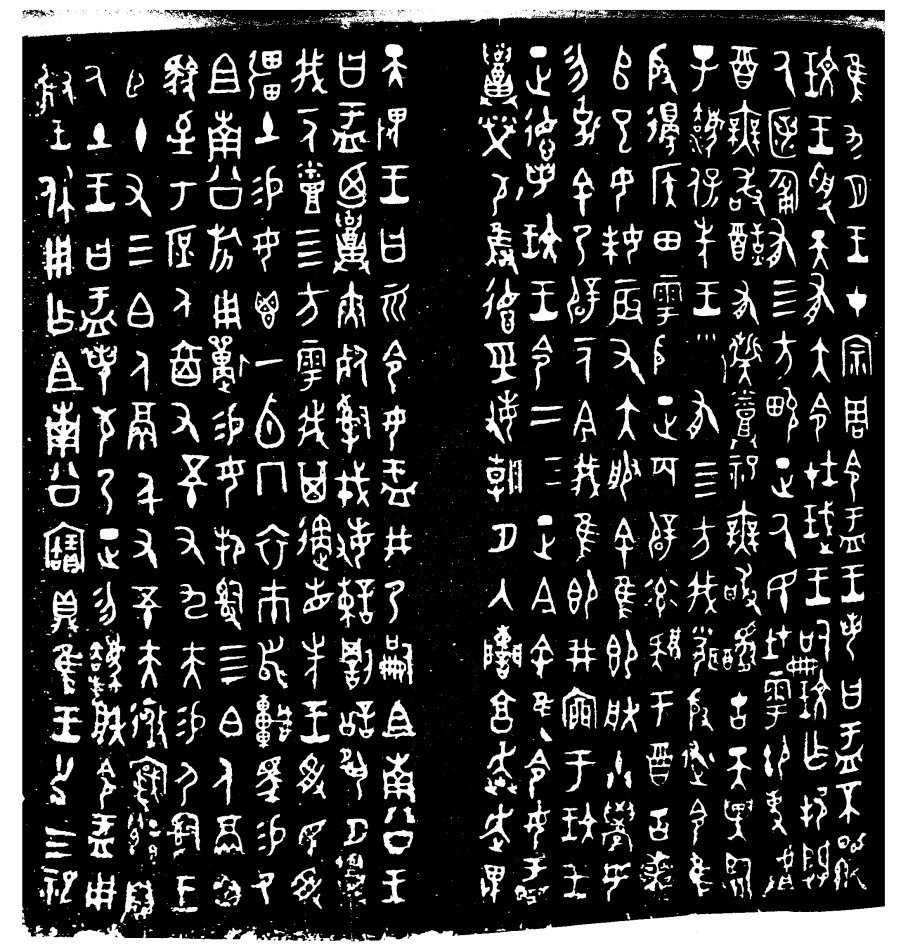 隹九月王才宗周令盂王若曰盂不顯
玟王受天有大令在珷王嗣玟乍邦闢
厥匿匍有四方畯正厥民在雩御事䖒
酉無敢酖有祡蒸祀無敢醻古天異臨
子灋保先王有四方我聞殷述令隹
殷邊侯田雩殷正百辟率肄于酉古喪
𠂤巳女妹辰又大服余隹即朕小學女
勿克余乃辟一人今我隹即井㐭于玟王
正德若玟王令二三正今余隹令女盂
召榮敬雍德巠敏朝夕入讕享奔走畏
天畏王曰而令女盂井乃嗣且南公王
曰盂廼召夾死司戎敏諫罰訟夙夕召
我一人烝四方雩我其遹省先王受民受
彊土易女鬯一卣冂衣巿舄車馬易乃
且南公旂用狩易女邦司四白人鬲自
馭至于庶人六百又五十又九夫易尸司王
臣十又三白人鬲千又五十夫遷自
厥土王曰盂若敬乃正勿灋朕令盂用
對王休用乍且南公寶鼎隹王廿又三祀